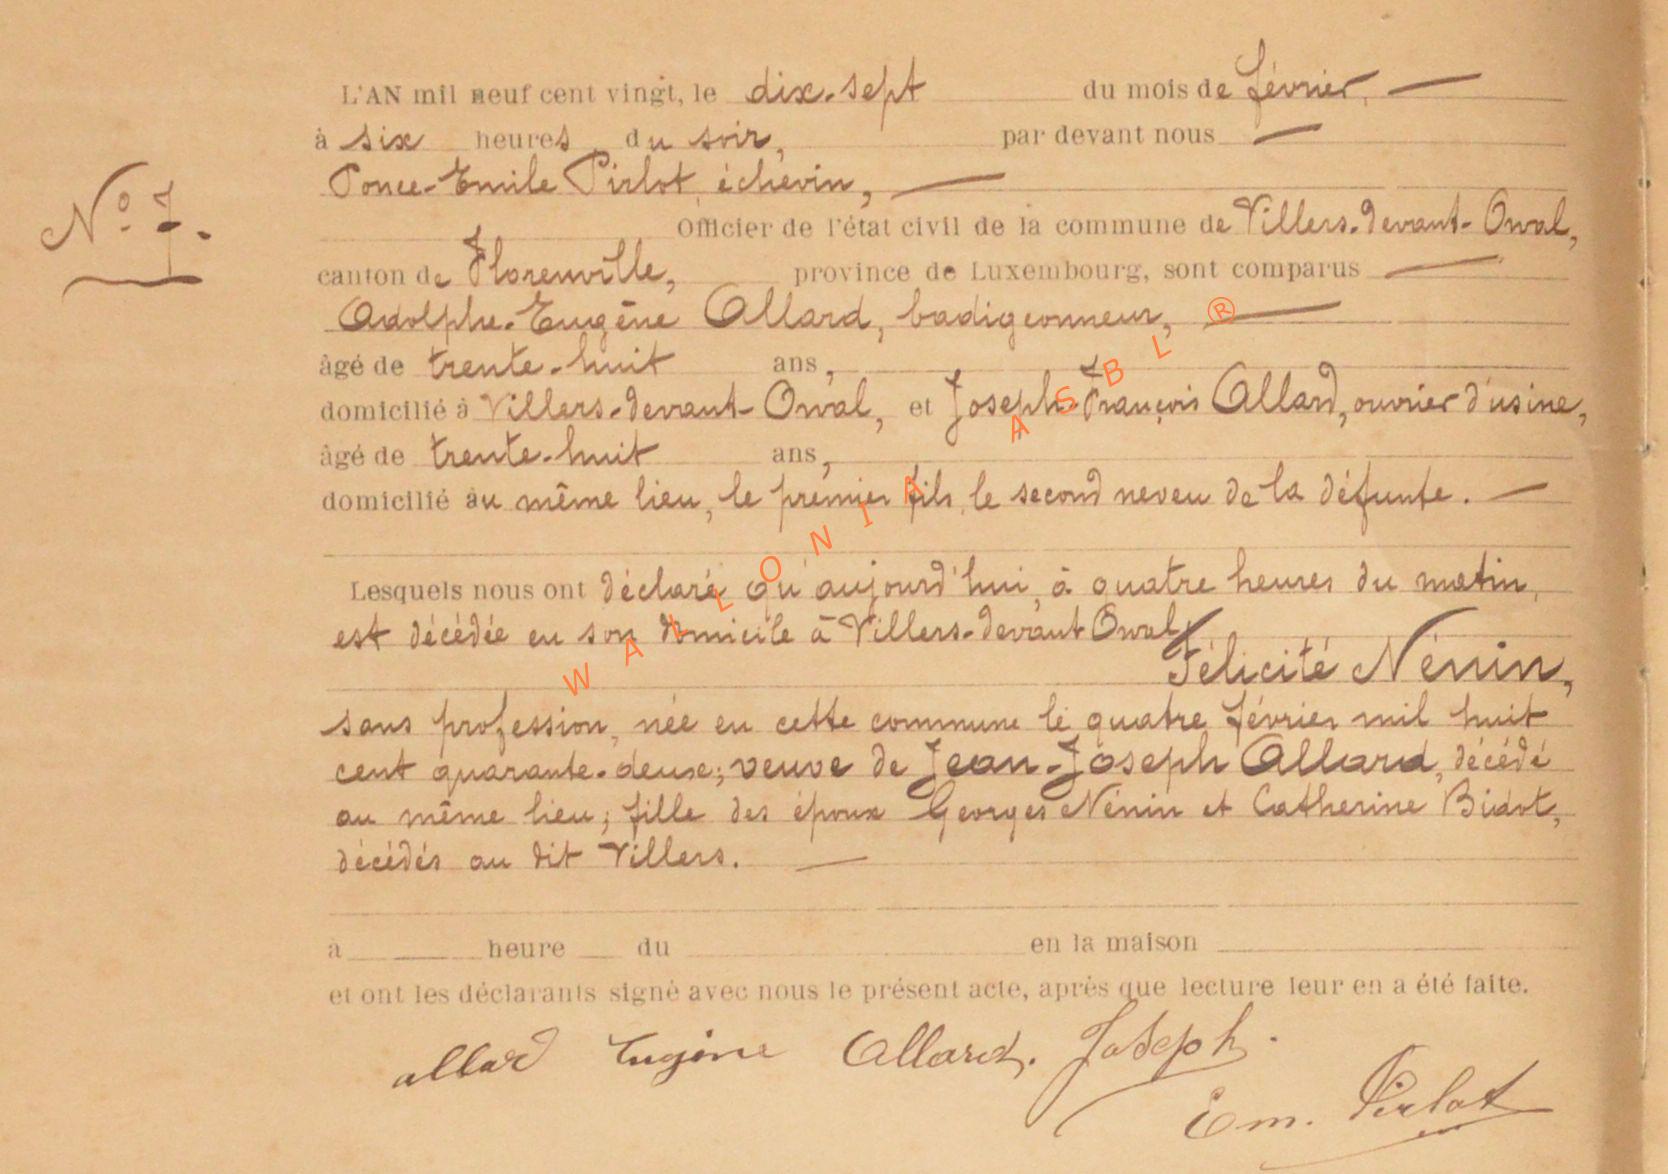 L'AN mil neuf cent vingt, le dix-sept du mois de février, —
à six heures du soir, par devant nous —
Ponce-Emile Pirlot, échevin, —
N° 7.
Officier de l'état civil de la commune de Villers-devant-Orval,
canton de Florenville, province de Luxembourg, sont comparus —
Adolphe-Eugène Allard, badigeonneur, —
âgé de trente-huit ans,
domicilié à Villers-devant-Orval, et Joseph-François Allard, ouvrier d'usine,
âgé de trente-huit ans,
domicilié au même lieu, le premier fils, le second neveu de la défunte. —
Lesquels nous ont déclaré qu'aujourd'hui, à quatre heures du matin,
est décédée en son domicile à Villers-devant Orval,
Félicité Nénin,
sans profession, née en cette commune le quatre février mil huit
cent quarante-deux; veuve de Jean-Joseph Allard, décédé
au même lieu; fille des époux Georges Nénin et Catherine Bidot,
décédés au dit Villers. —
à heure du en la maison
et ont les déclarants signé avec nous le présent acte, après que lecture leur en a été faite.
allard Eugène Allard. Joseph.
Em. Pirlot
WALLONIA ASBL ®